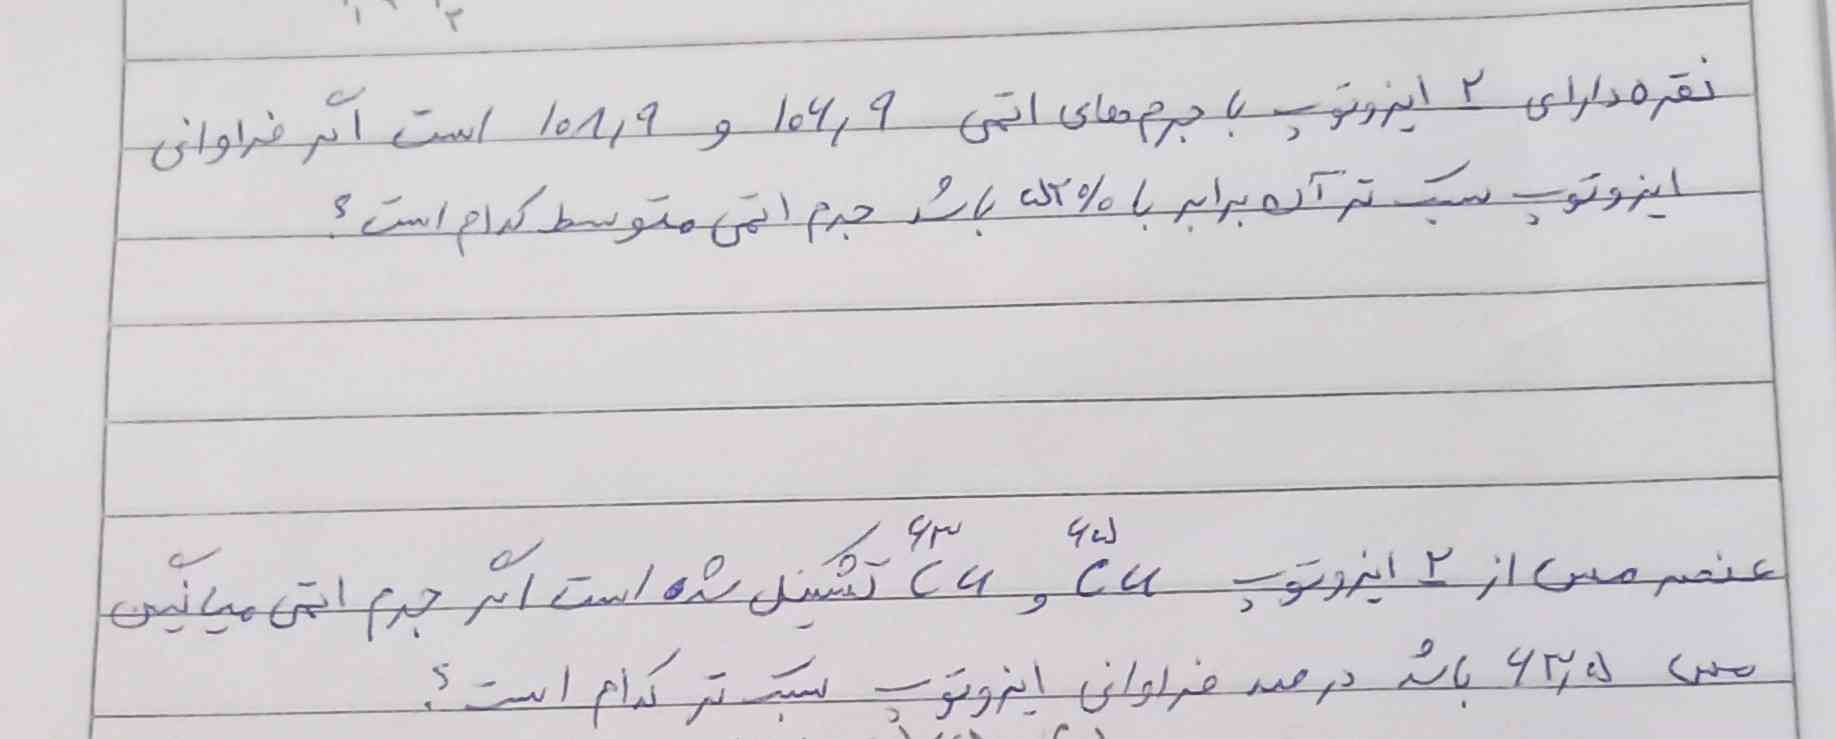 نقره دارای ۲ ایزوتوپ با جرم های اتمی ۱۰۶,۹ و ۱۰۸,۹ است اگر فراوانی
ایزوتوپ سبک تر آن برابر با ۵۲% باشد جرم اتمی متوسط کدام است؟
عنصر مس از ۲ ایزوتوپ ⁶⁵Cu و ⁶³Cu تشکیل شده است اگر جرم اتمی میانگین
مس ۶۳,۵ باشد درصد فراوانی ایزوتوپ سبک تر کدام است؟